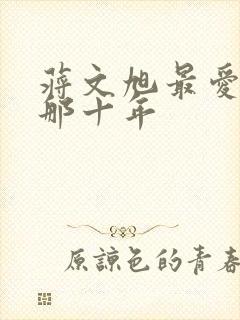 蔣文旭最愛
那十年
原諒色的青春